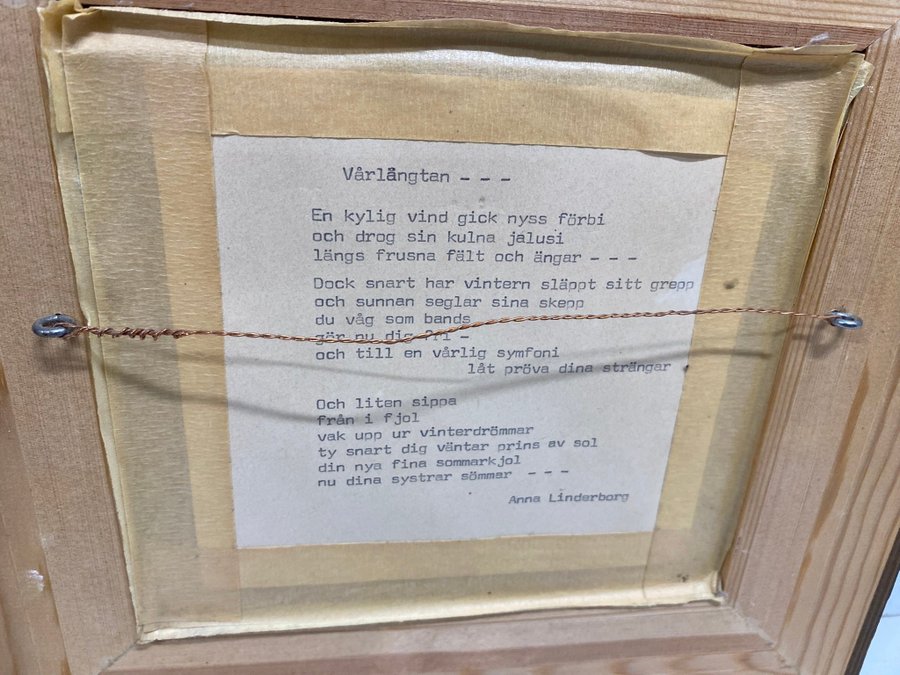 Vårlängtan - - -
En kylig vind gick nyss förbi
och drog sin kulna jalusi
längs frusna fält och ängar - - -
Dock snart har vintern släppt sitt grepp
och sunnan seglar sina skepp
du våg som bands
gör nu dig fri -
och till en vårlig symfoni
låt pröva dina strängar
Och liten sippa
från i fjol
vak upp ur vinterdrömmar
ty snart dig väntar prins av sol
din nya fina sommarkjol
nu dina systrar sömmar - - -
Anna Linderborg